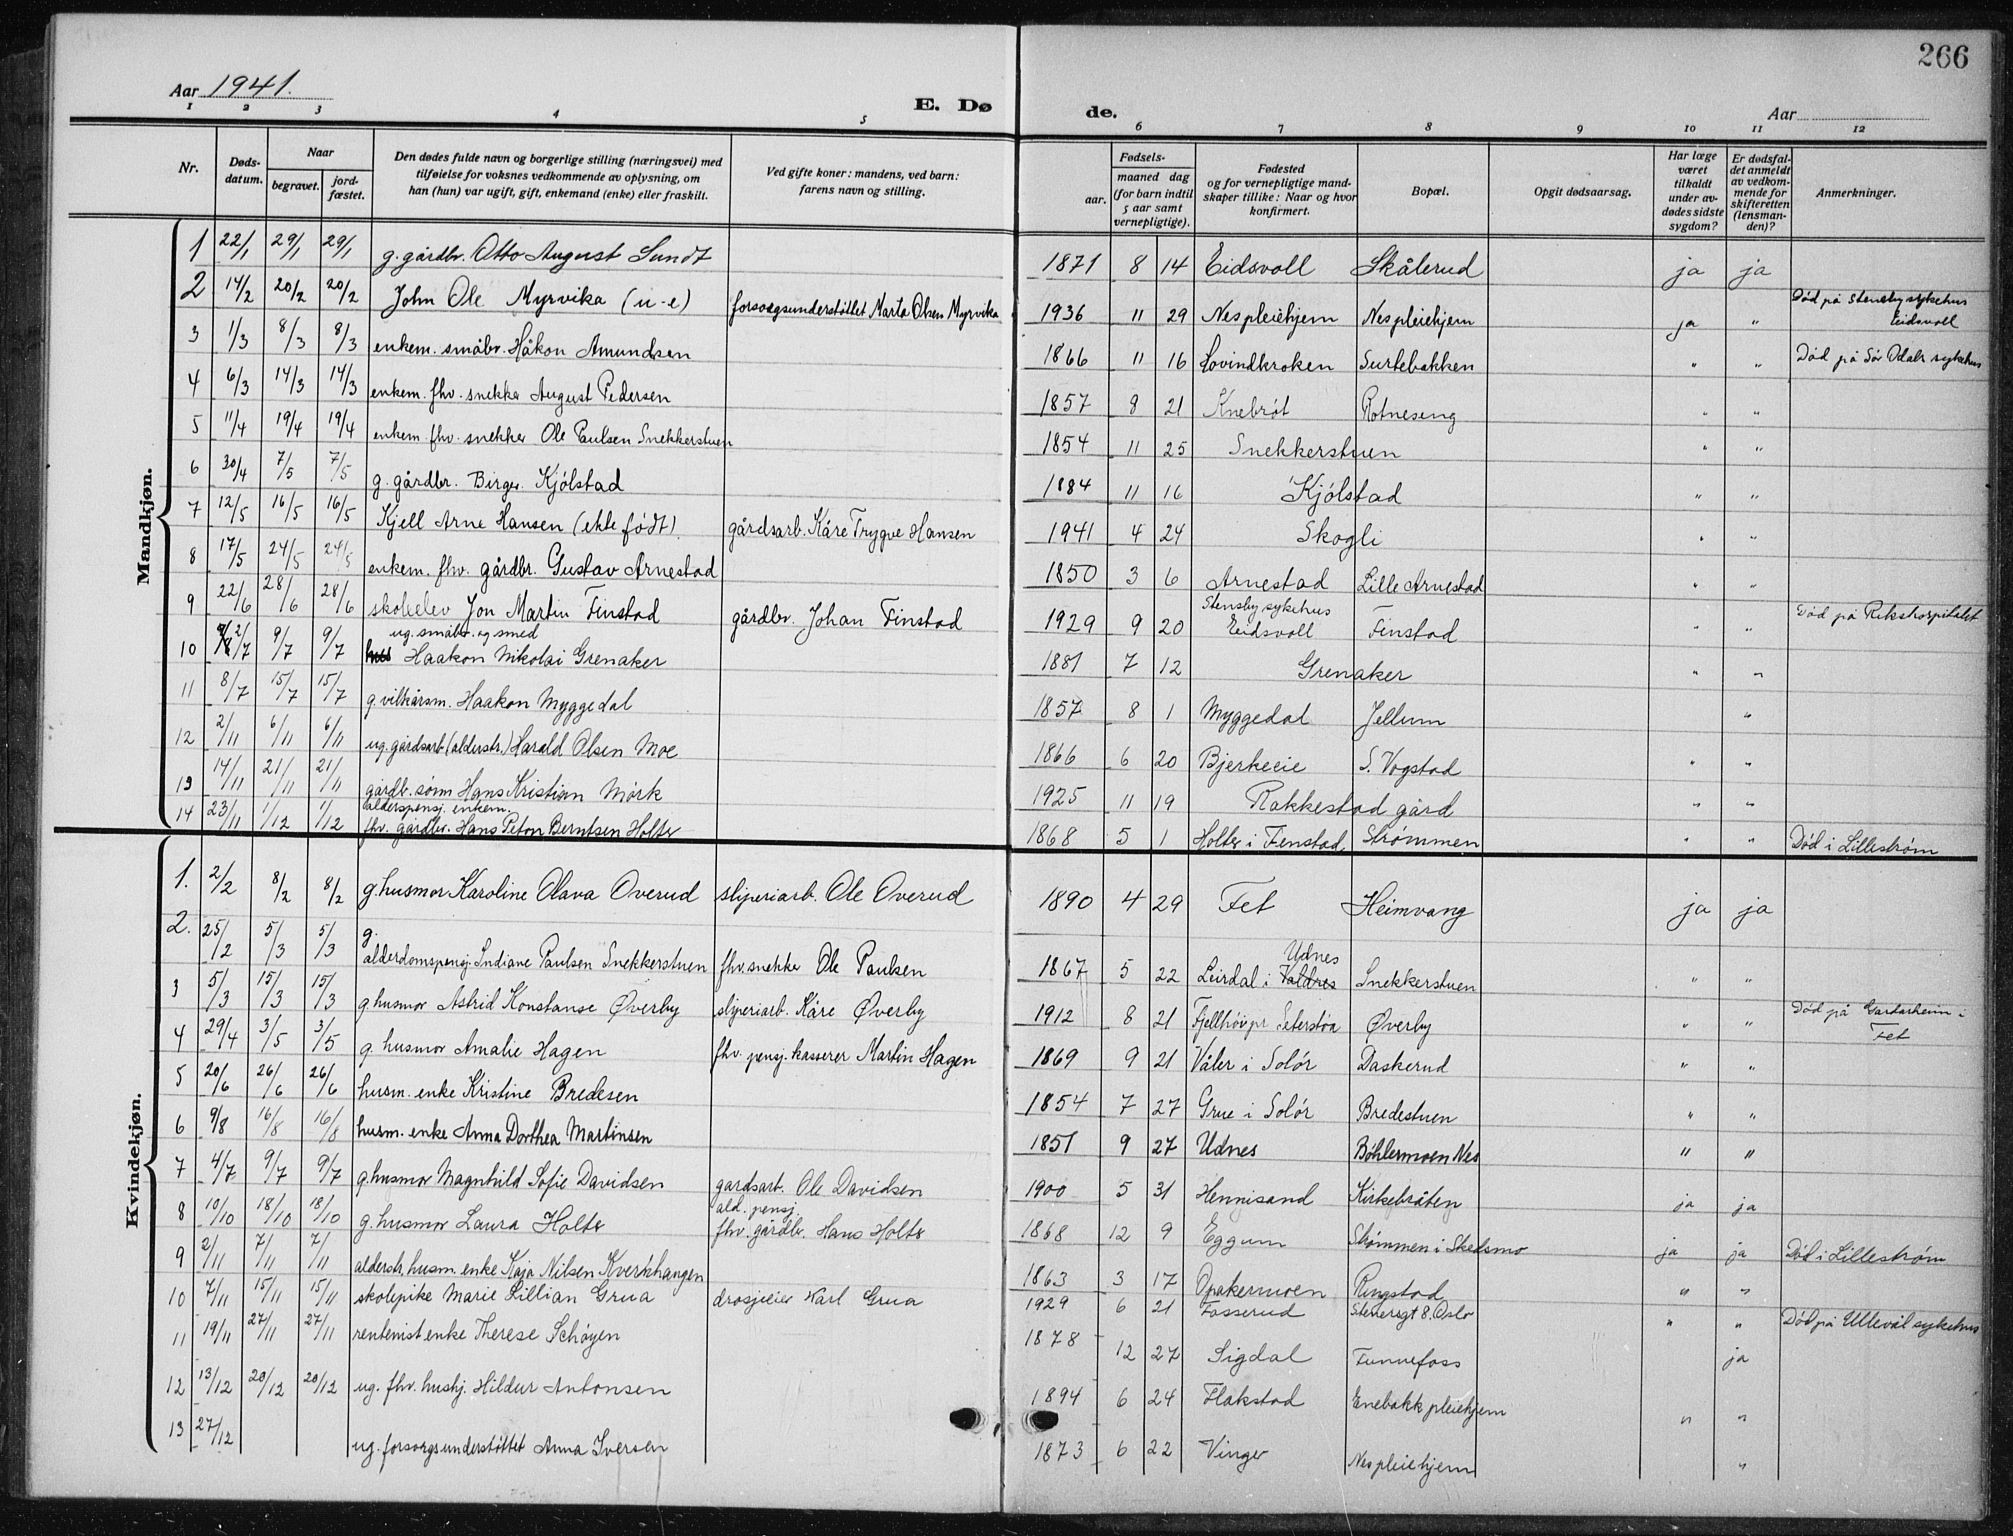 266
Aar 1941.
E. Døde.
Aar
1 2 3 4 5 6 7 8 9 10 11 12
Nr. | Døds-datum. | Naar begravet. | jord-fæstet. | Den dødes fulde navn og borgerlige stilling (næringsvei) med tilføielse for voksnes vedkommende av oplysning, om han (hun) var ugift, gift, enkemand (enke) eller fraskilt. | Ved gifte koner: mandens, ved barn: farens navn og stilling. | Fødsels- aar. maaned dag (for barn indtil 5 aar samt vernepligtige). | Fødested og for vernepligtige mand-skaper tillike: Naar og hvor konfirmert. | Bopæl. | Opgit dødsaarsag. | Har læge været tilkaldt under av-dødes sidste sygdom? | Er dødsfal-det anmeldt av vedkom-mende for skifteretten (lensman-den)? | Anmerkninger.
Mandkjøn.
1 22/1 29/1 29/1 g. gårdbr. Otto August Sundt 1871 8 14 Eidsvoll Skålerud ja ja
2 14/2 20/2 20/2 John Ole Myrvika (u-e) forsorgsunderstøttet Marta Olsen Myrvika 1936 11 29 Nes pleiehjem Nes pleiehjem ja " Død på Stensby sykehus Eidsvoll
3 1/3 8/3 8/3 enkem. småbr. Håkon Amundsen 1866 11 16 Hovindkroken Surtebakken " " Død på Sør Odals sykehus
4 6/3 14/3 14/3 enkem. fhv. snekker August Pedersen 1857 8 21 Knebröt Rotneseng " "
5 11/4 19/4 19/4 enkem. fhv. snekker Ole Paulsen Snekkerstuen 1854 11 25 Snekkerstuen " "
6 30/4 7/5 7/5 g. gårdbr. Birger Kjölstad 1884 11 16 Kjölstad " "
7 12/5 16/5 16/5 Kjell Arne Hansen (ekte födt). gårdsarb. Kåre Trygve Hansen 1941 4 24 Skogli " "
8 17/5 24/5 24/5 enkem. fhv. gårdbr. Gustav Arnestad 1850 3 6 Arnestad Lille Arnestad " "
9 22/6 28/6 28/6 skoleelev Jon Martin Finstad gårdbr. Johan Finstad 1929 9 20 Stensby sykehus Eidsvoll Finstad " " Död på Rikshospitalet
10 2/7 9/7 9/7 ug. småbr. og smed Haakon Nikolai Grenaker 1881 7 12 Grenaker " "
11 8/7 15/7 15/7 g. vilkårsm. Haakon Myggedal 1857 8 1 Myggedal Jellum "
12 2/11 6/11 6/11 ug. gårdsarb. (alderstr.) Harald Olsen Moe 1866 6 20 Bjerkeeie S. Vogstad " "
13 14/11 21/11 21/11 gårdb. sönn Hans Kristian Mörk 1925 11 19 Rakkestad gård " "
14 23/11 1/12 1/12 alderspensj. enkem. fhv. gårdbr. Hans Peton Berntsen Holter 1868 5 1 Holter i Fenstad Strømmen " " Död i Lillestrøm
Kvindekjøn.
1. 2/2 8/2 8/2 g. husmor Karoline Olava Overud sliperiarb. Ole Overud 1890 4 29 Fet Heimvang ja ja
2. 25/2 5/3 5/3 g. alderdomspensj. Indiane Paulsen Snekkerstuen fhv. snekker Ole Paulsen 1867 5 22 Leirdal i Valdres Udnes Snekkerstuen " "
3 5/3 15/3 15/3 g. husmor Astrid Konstanse Øverby sliperiarb. Kåre Øverby 1912 8 21 Fjellhöi pr Seterstöa Øverby " " Död på Gardarheim i Fet
4 29/4 3/5 3/5 g. husmor Amalie Hagen fhv. pensj. kasserer Martin Hagen 1869 9 21 Våler i Solör Daskerud " "
5 20/6 26/6 26/6 husm. enke Kristine Bredesen 1854 7 27 Grue i Solör Bredestuen " "
6 9/8 16/8 16/8 husm. enke Anna Dorthea Martinsen 1851 9 27 Udnes Böhlermoen Nes " "
7 4/7 9/7 9/7 g. husmor Magnhild Sofie Davidsen gardsarb. Ole Davidsen 1900 5 31 Hennisand Kirkebråten ja ja
8 10/10 18/10 18/10 g. husmor Laura Holter ald. pensj. fhv. gårdbr. Hans Holter 1868 12 9 Eggum Strømmen i Skedsmo ja ja Död i Lillestrøm
9 2/11 7/11 7/11 alderstr. husm. enke Kaja Nilsen Kvernhangen 1863 3 17 Opakermoen Ringstad " "
10 7/11 15/11 15/11 skolepike Marie Lillian Grua drosjeeier Karl Grua 1929 6 21 Fosserud Stenersgt 8. Oslo " " Död på Ullevål sykehus
11 19/11 27/11 27/11 rentenist enke Therese Schöyen 1878 12 27 Sigdal Funnefoss ja
12 13/12 20/12 20/12 ug. fhv. hushj. Hildur Antonsen 1894 6 24 Flakstad Enebakk pleiehjem " "
13 27/12 ug. forsorgsunderstöttet Anna Iversen 1873 6 22 Vinger Nes pleiehjem "